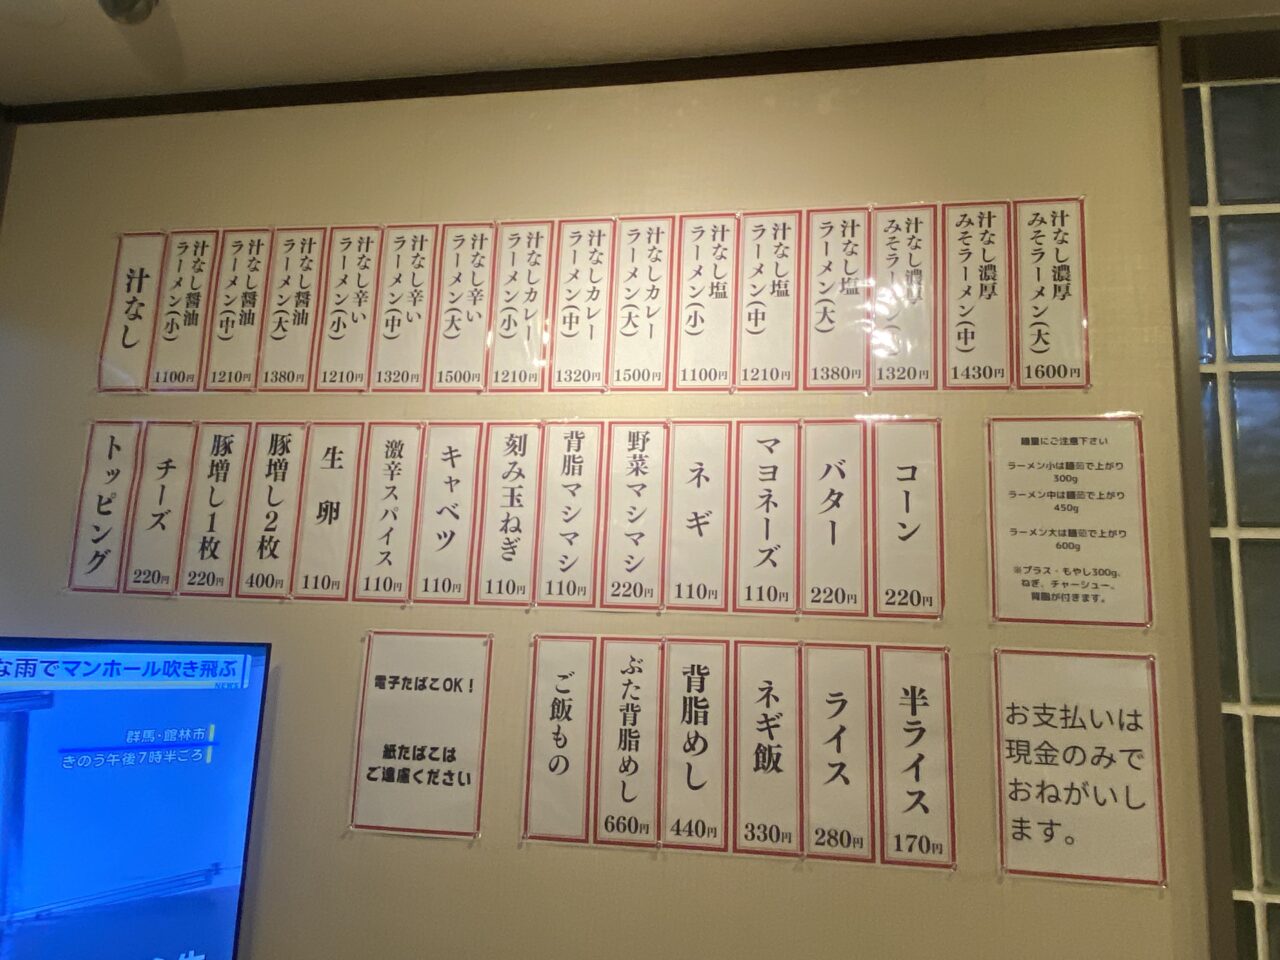 汁なし
汁なし醤油
ラーメン(小)
1100円
汁なし醤油
ラーメン(中)
1210円
汁なし醤油
ラーメン(大)
1380円
汁なし辛い
ラーメン(小)
1210円
汁なし辛い
ラーメン(中)
1320円
汁なし辛い
ラーメン(大)
1500円
汁なしカレー
ラーメン(小)
1210円
汁なしカレー
ラーメン(中)
1320円
汁なしカレー
ラーメン(大)
1500円
汁なし塩
ラーメン(小)
1100円
汁なし塩
ラーメン(中)
1210円
汁なし塩
ラーメン(大)
1380円
汁なし濃厚
みそラーメン
1320円
汁なし濃厚
みそラーメン(中)
1430円
汁なし濃厚
みそラーメン(大)
1600円
トッピング
チーズ
220円
豚増し1枚
220円
豚増し2枚
400円
生卵
110円
激辛スパイス
110円
キャベツ
110円
刻み玉ねぎ
110円
背脂マシマシ
110円
野菜マシマシ
220円
ネギ
110円
マヨネーズ
110円
バター
220円
コーン
220円
麺量にご注意下さい
ラーメン小は麺茹で上がり
300g
ラーメン中は麺茹で上がり
450g
ラーメン大は麺茹で上がり
600g
※プラス・もやし300g、
ねぎ、チャーシュー、
背脂が付きます。
電子たばこOK!
紙たばこは
ご遠慮ください
ご飯もの
ぶた背脂めし
660円
背脂めし
440円
ネギ飯
330円
ライス
280円
半ライス
170円
お支払いは
現金のみで
おねがいし
ます。
な雨でマンホール吹き飛ぶ
NEWS
群馬・館林市
きのう午後7時半ごろ